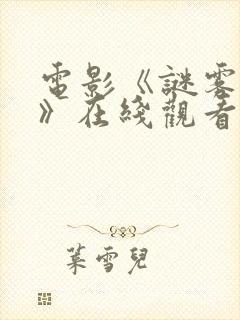 電影《謎霧
》在綫觀看
葉雪兒